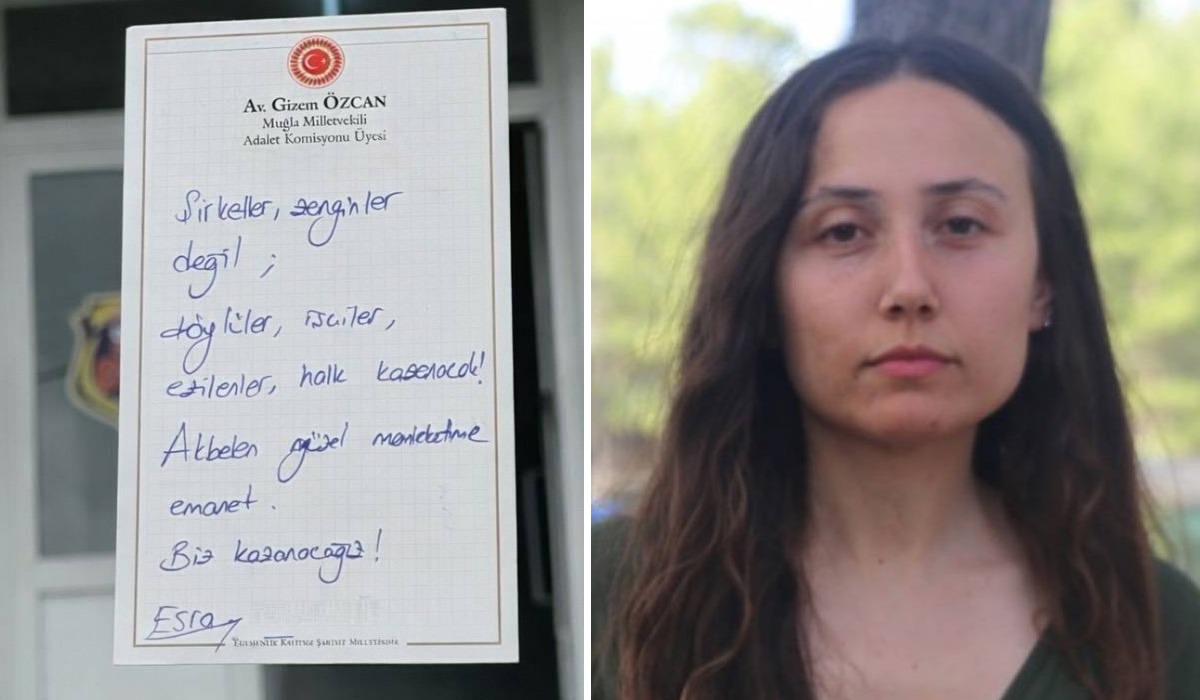 Av. Gizem ÖZCAN
Muğla Milletvekili
Adalet Komisyonu Üyesi
Şirketler, zenginler
değil ;
köylüler, işçiler,
ezilenler, halk kazanacak!
Akbelen güzel memleketime
emanet.
Biz kazanacağız!
Esra
EGEMENLİK KAYITSIZ ŞARTSIZ MİLLETİNDİR